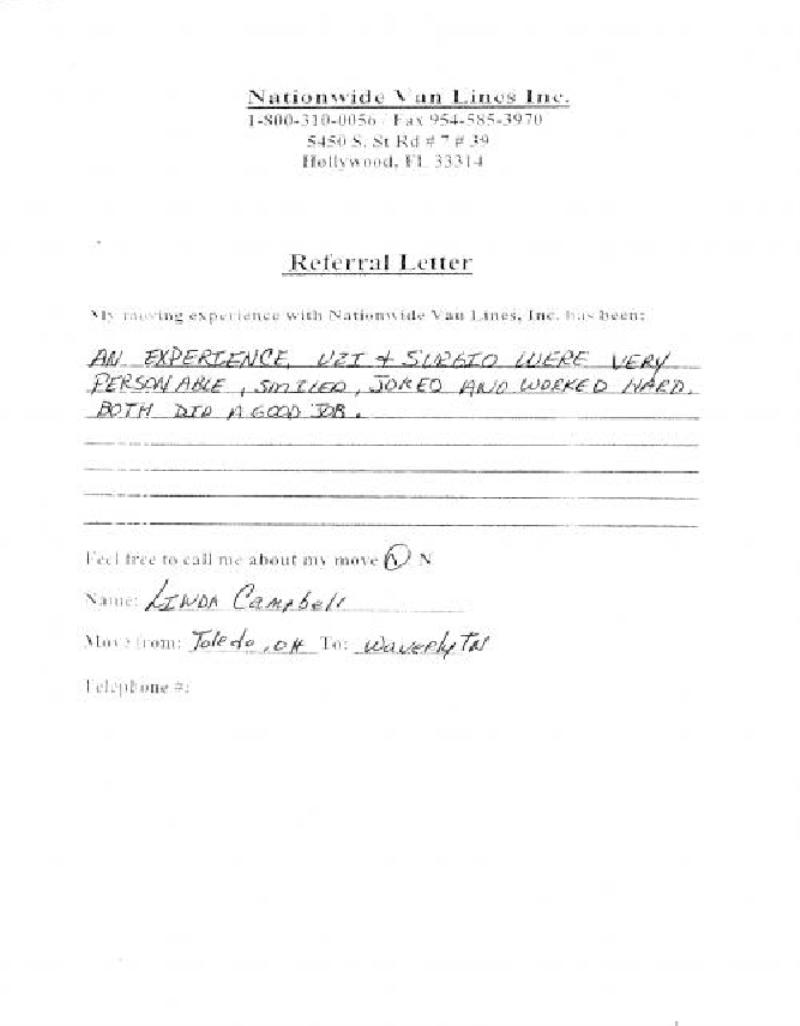 Nationwide Van Lines Inc.
1-800-310-0056 / Fax 954-585-3970
5450 S. St Rd # 7 # 39
Hollywood, FL 33314
Referral Letter
My moving experience with Nationwide Van Lines, Inc. has been:
AN EXPERIENCE. UZI + SURGIO WERE VERY
PERSONABLE, SMILED, JOKED AND WORKED HARD.
BOTH DID A GOOD JOB.
Feel free to call me about my move Y N
Name: LINDA Campbell
Move from: Toledo, OH To: Waverly TN
Telephone #: